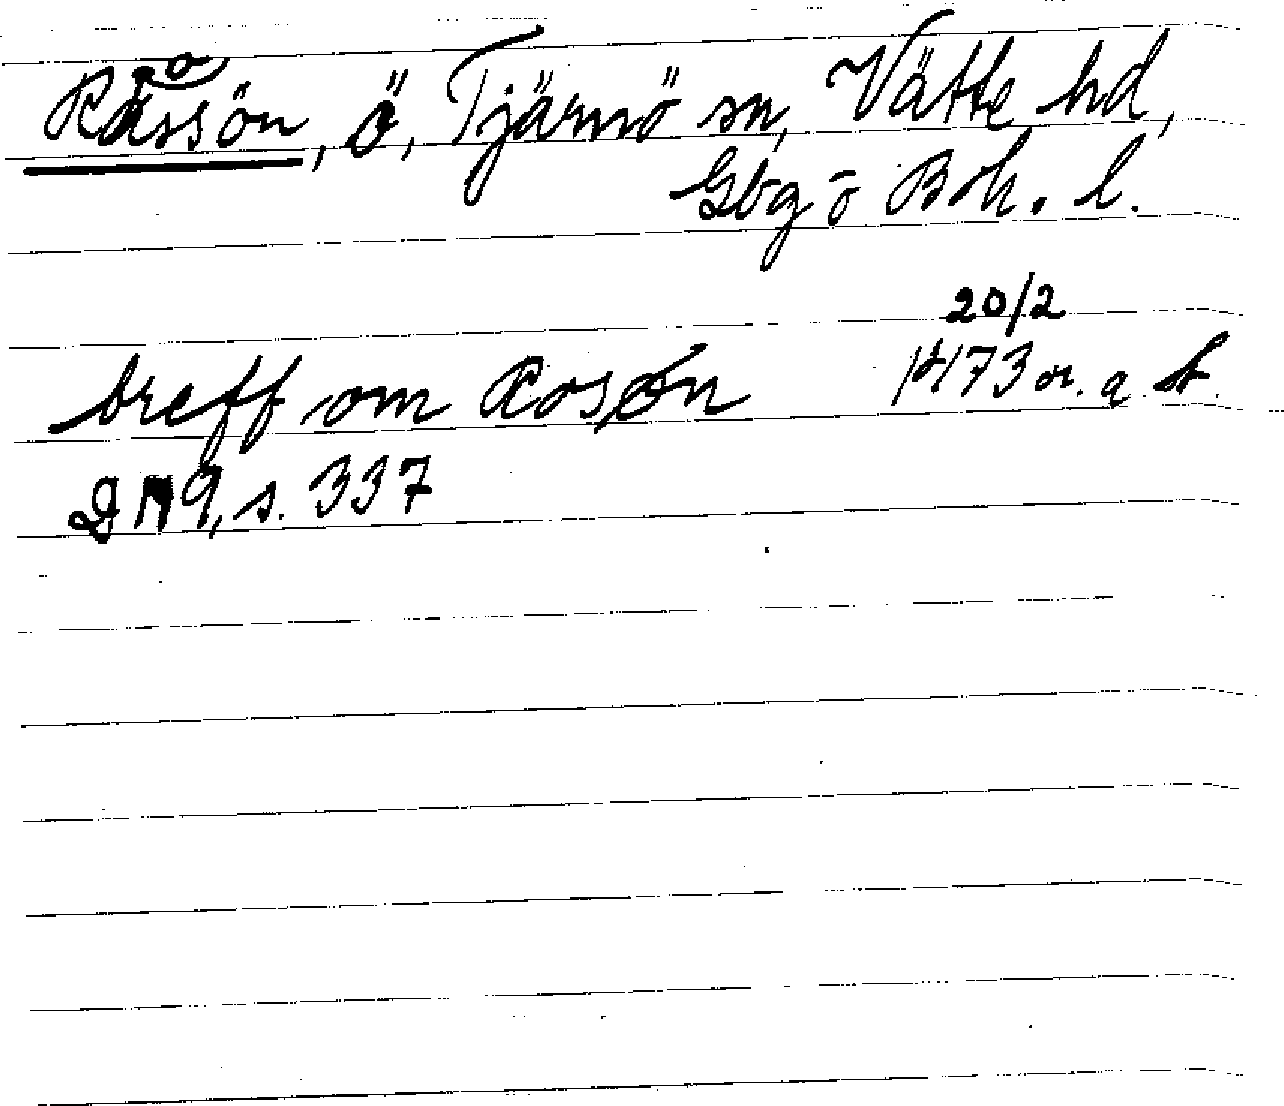 Råssön, ö, Tjärnö sn, Vätte hd,
Gbg o Boh. l.
20/2
breff om Rosøn 1473 or. a.
DN 9, s. 337